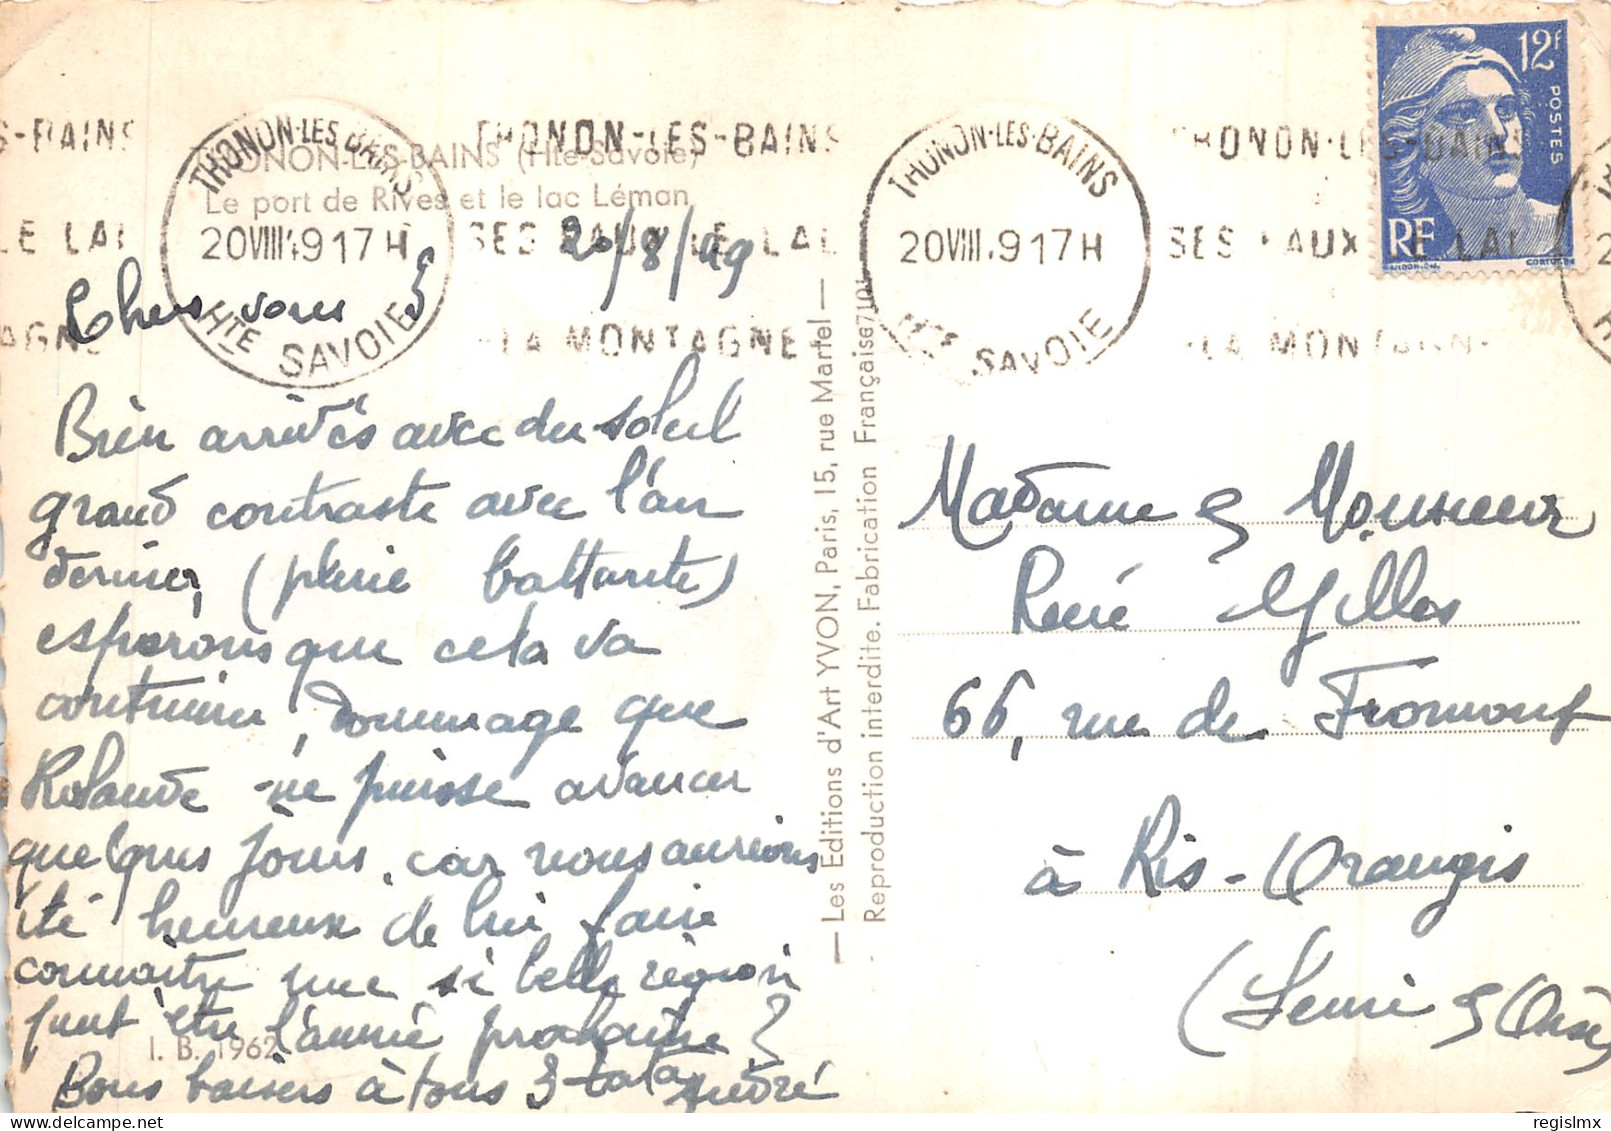 THONON-LES-BAINS (Hte-Savoie)
Le port de Rives et le lac Léman
THONON-LES-BAINS
20 VIII 49 17 H
HTE SAVOIE
THONON-LES-BAINS
SES EAUX LE LAC
LA MONTAGNE
THONON-LES-BAINS
20 VIII 49 17 H
HTE SAVOIE
THONON-LES-BAINS
SES EAUX LE LAC
LA MONTAGNE
12F
POSTES
RF
20/8/49
Chers vous 3
Bien arrivés avec du soleil
grand contraste avec l'an
dernier, (pluie battante)
espérons que cela va
continuer, dommage que
Rolande ne puisse avancer
quelques jours, car nous aurions
été heureux de lui faire
connaitre une si belle région
peut être l'année prochaine ?
Bons baisers à tous 3 tata André
I. B. 1962
— Les Editions d'Art YVON, Paris, 15, rue Martel —
Reproduction interdite. Fabrication Française 7101
Madame & Monsieur
René Gilles
66, rue de Fromont
à Ris-Orangis
(Seine & Oise)
regislmx